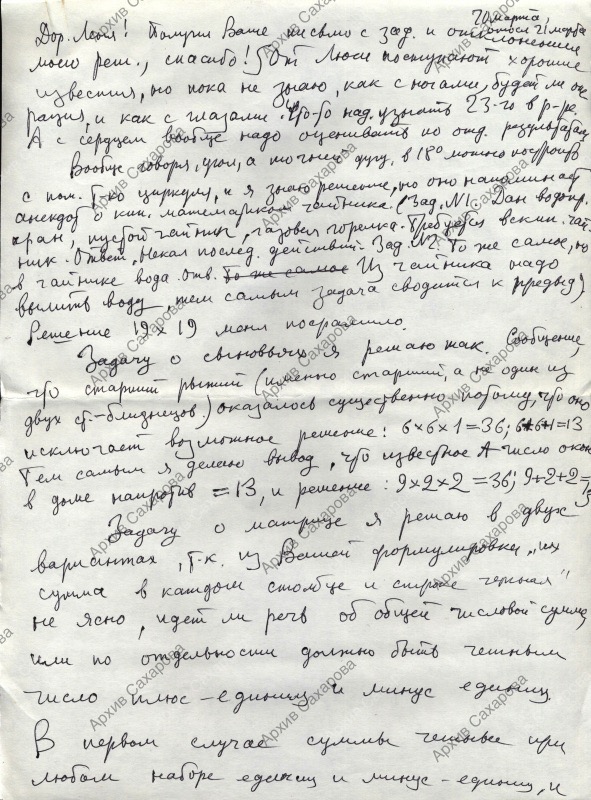 20 марта,
Дор. Леня! Получил Ваше письмо с зад. и отклонением 21 марта
моего реш., спасибо! От Люси поступают хорошие
известия, но пока не знаю, как с ногами, будет ли опе
рация, и как с глазами. Что-то над. узнать 23-го в р-ре.
А с сердцем вообще надо оценивать по отд. результатам
Вообще говоря, угол, а точнее дугу, в 18° можно построить
с пом. т-ко циркуля, и я знаю решение, но оно напоминает
анекдот о кип. математиком чайника. (Зад. №1. Дан водопр.
кран, пустой чайник, газовая горелка. Требуется вскип. чай-
ник. Ответ. Некая послед. действий. Зад. №2. То же самое, но
в чайнике вода. Отв. То же самое Из чайника надо
вылить воду, тем самым задача сводится к предыд.)
Решение 19 x 19 меня посрамило.
Задачу о сыновьях я решаю так. Сообщение,
что старший рыжий (именно старший, а не один из
двух ст.-близнецов) оказалось существенно потому, что оно
исключает возможное решение: 6×6×1=36; 6+6+1=13
Тем самым я делаю вывод, что известное А число окон
в доме напротив =13, и решение: 9×2×2=36; 9+2+2=13
Задачу о матрице я решаю в двух
вариантах, т.к. из Вашей формулировки „их
сумма в каждом столбце и строке четная"
не ясно, идет ли речь об общей числовой сумме,
или по отдельности должно быть четным
число плюс-единиц и минус единиц
В первом случае суммы четные при
любом наборе единиц и минус-единиц, и
Архив Сахарова